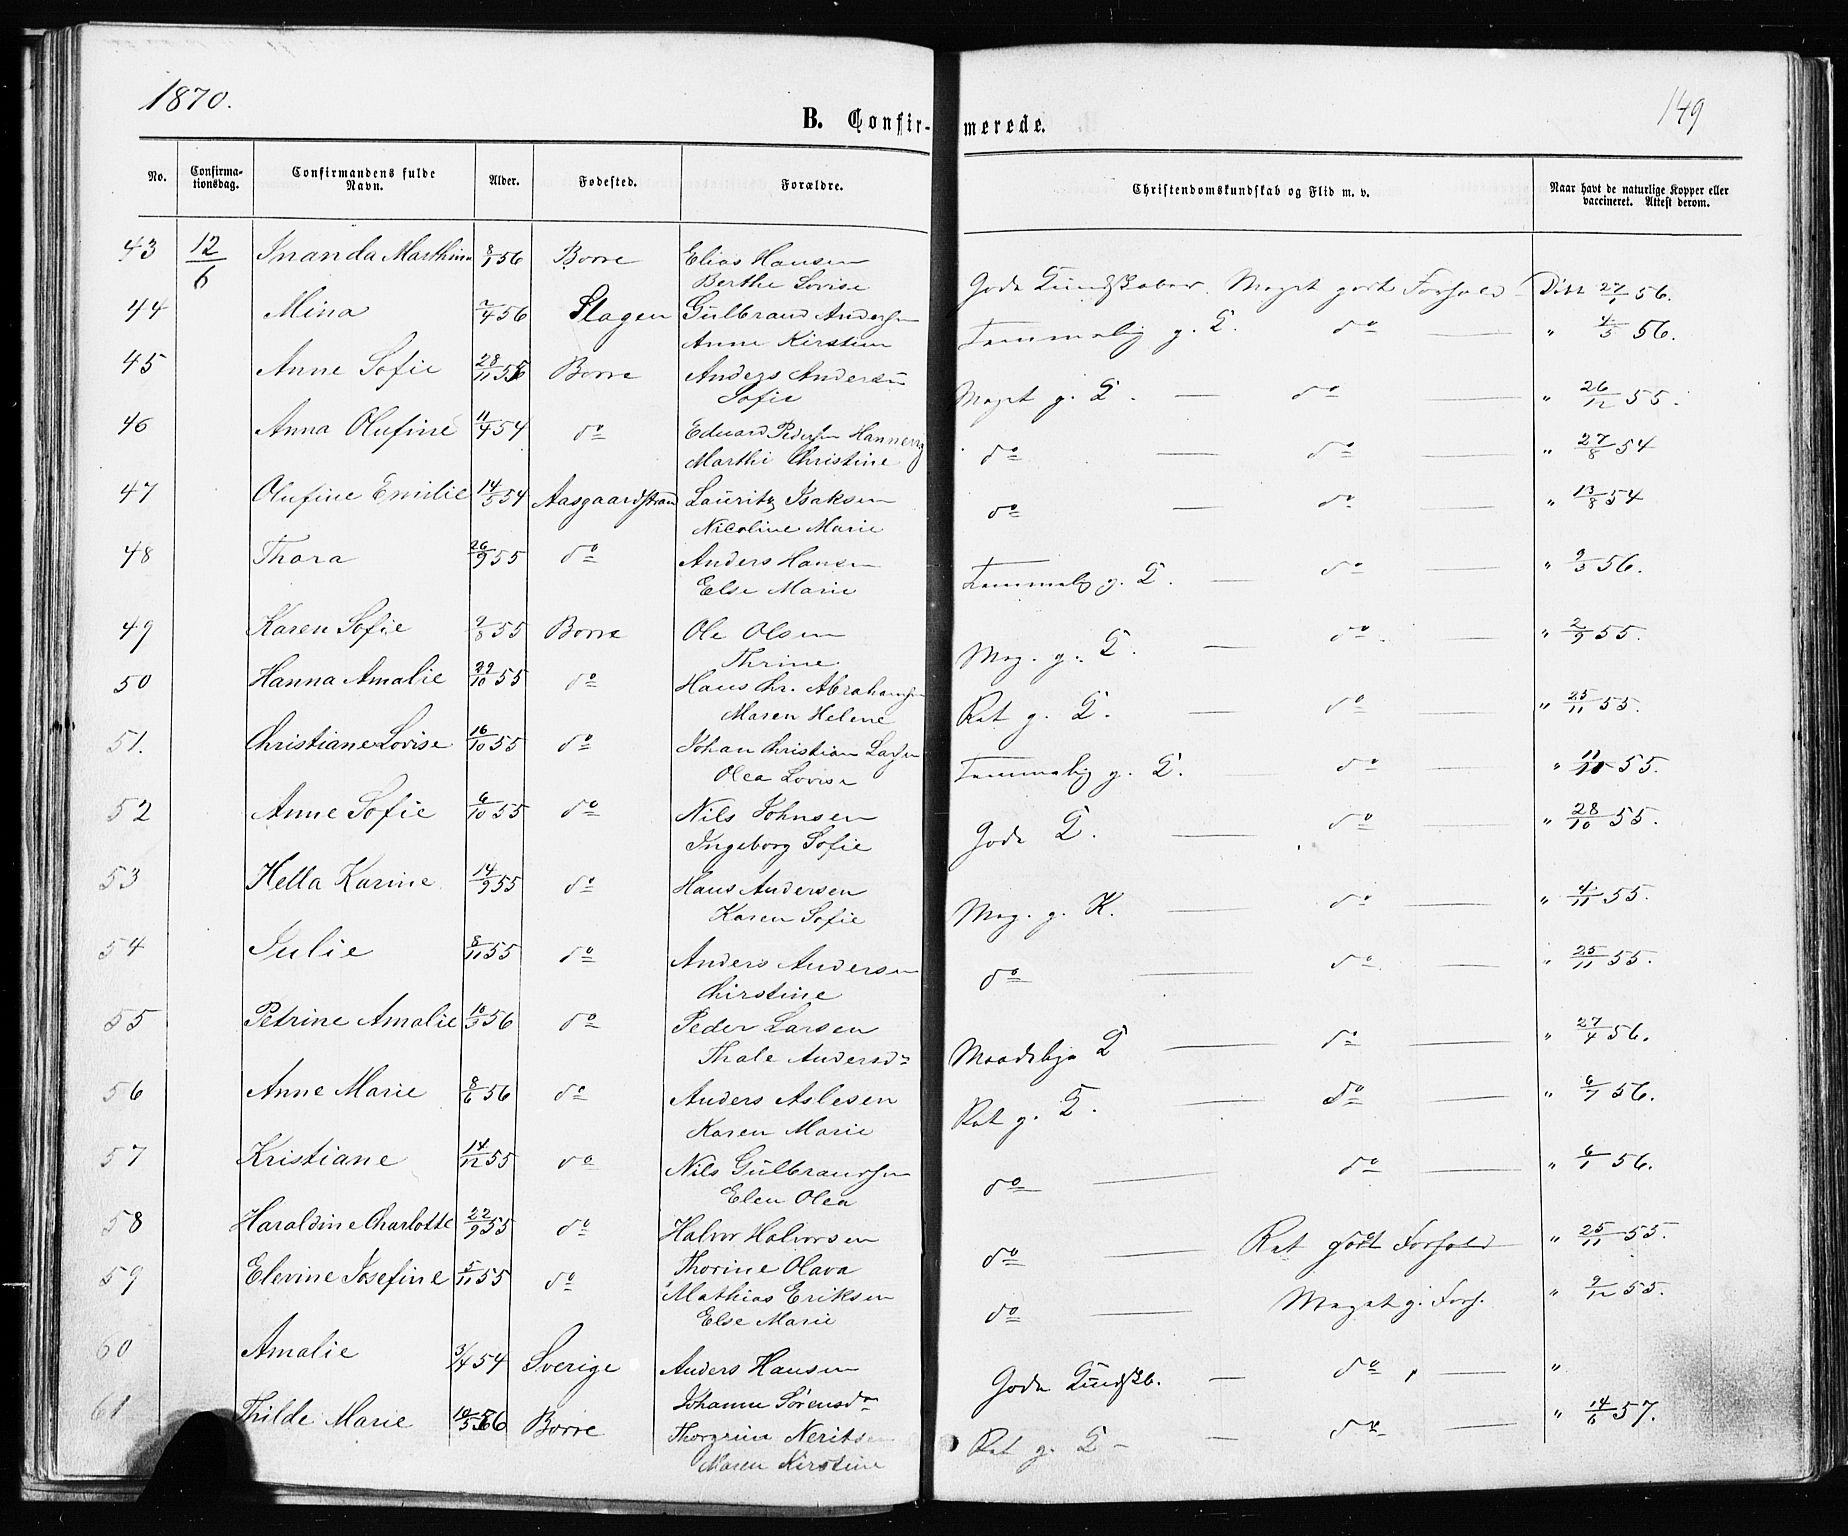 1870.
149
B. Confir-merede.
No. Confirma-tionsdag. Confirmandens fulde Navn. Alder. Fødested. Forældre. Christendomskundskab og Flid m. v. Naar havt de naturlige Kopper eller vaccineret. Attest derom.
43 12/6 Inanda Marthine 8/1 56 Borre Elias Hansen Gode Kundskaber. Meget godt Forhold 27/1 56.
Berthe Lovise
44 Mina 7/4 56 Slagen Gulbrand Andersen Temmelig g. K. do " 4/5 56.
Anne Kirstine
45 Anne Sofie 28/11 55 Borre Anders Andersen Meget g. K. — do — " 26/12 55.
Sofie
46 Anna Olufine 11/4 54 do Eduard Pedersen do — do — " 27/8 54
Marthe Christine
47 Olufine Emilie 14/5 54 Aasgaardstrand Lauritz Isaksen do — do — " 13/8 54
Nicoline Marie
48 Thora 26/9 55 do Anders Hansen Temmelig g. K. — do — " 9/3 56.
Else Marie
49 Karen Sofie 9/8 55 Borre Ole Olsen Meg. g. K. — do — " 2/9 55.
Thrine
50 Hanna Amalie 29/10 55 do Hans Chr. Abrahamsen Ret g. K. — do — " 25/11 55.
Maren Helene
51. Christiane Lovise 16/10 55 do Johan Christian Larsen Temmelig g. K. do — " 11/11 55.
Olea Lovise
52 Anne Sofie 6/10 55 do Nils Johnsen Gode K. — do — " 28/10 55.
Ingeborg Sofie
53 Hella Karine 14/9 55 do Hans Andersen Meg. g. K. — do — " 4/11 55.
Karen Sofie
54 Julie 8/11 55 do Anders Andersen do — do — " 25/11 55.
Chirstine
55 Petrine Amalie 10/3 56 do Peder Larsen Maadelige K — do — " 27/4 56.
Thale Andersdr
56 Anne Marie 8/6 56 do Anders Aslesen Ret g. K. — do — " 6/7 56.
Karen Marie
57 Kristiane 14/12 55 do Nils Gulbrandsen do — do — " 6/1 56.
Elen Olea
58 Haraldine Charlotte 22/9 55 do Halvor Halvorsen do — Ret godt Forhold " 25/11 55.
Thorine Olava
59 Elevine Josefine 5/11 55 do Mathias Eriksen do — Meget g. Forh. " 9/12 55.
Else Marie
60 Amalie 3/4 54 Sverige Anders Hansen Gode Kundskb. — do — "
Johanne Sørensdr
61 Thilde Marie 10/5 56 Borre Ret g. K — do — " 14/6 57.
Maren Kirstine